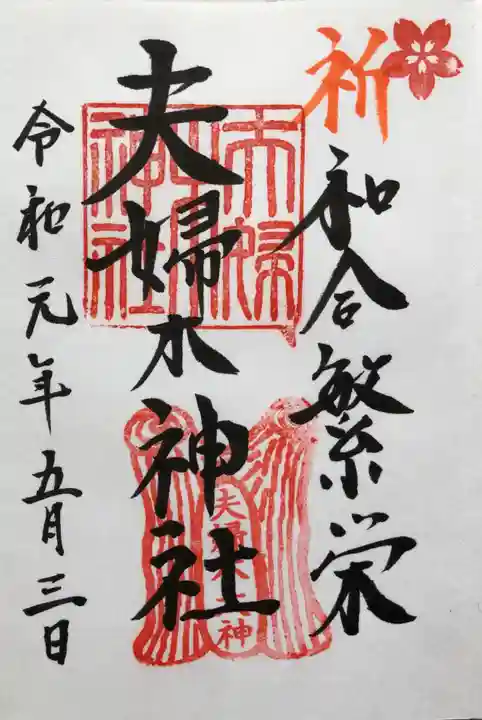 祈
和合繁栄
夫婦木神社
令和元年五月三日
夫婦木神社
夫婦木大神